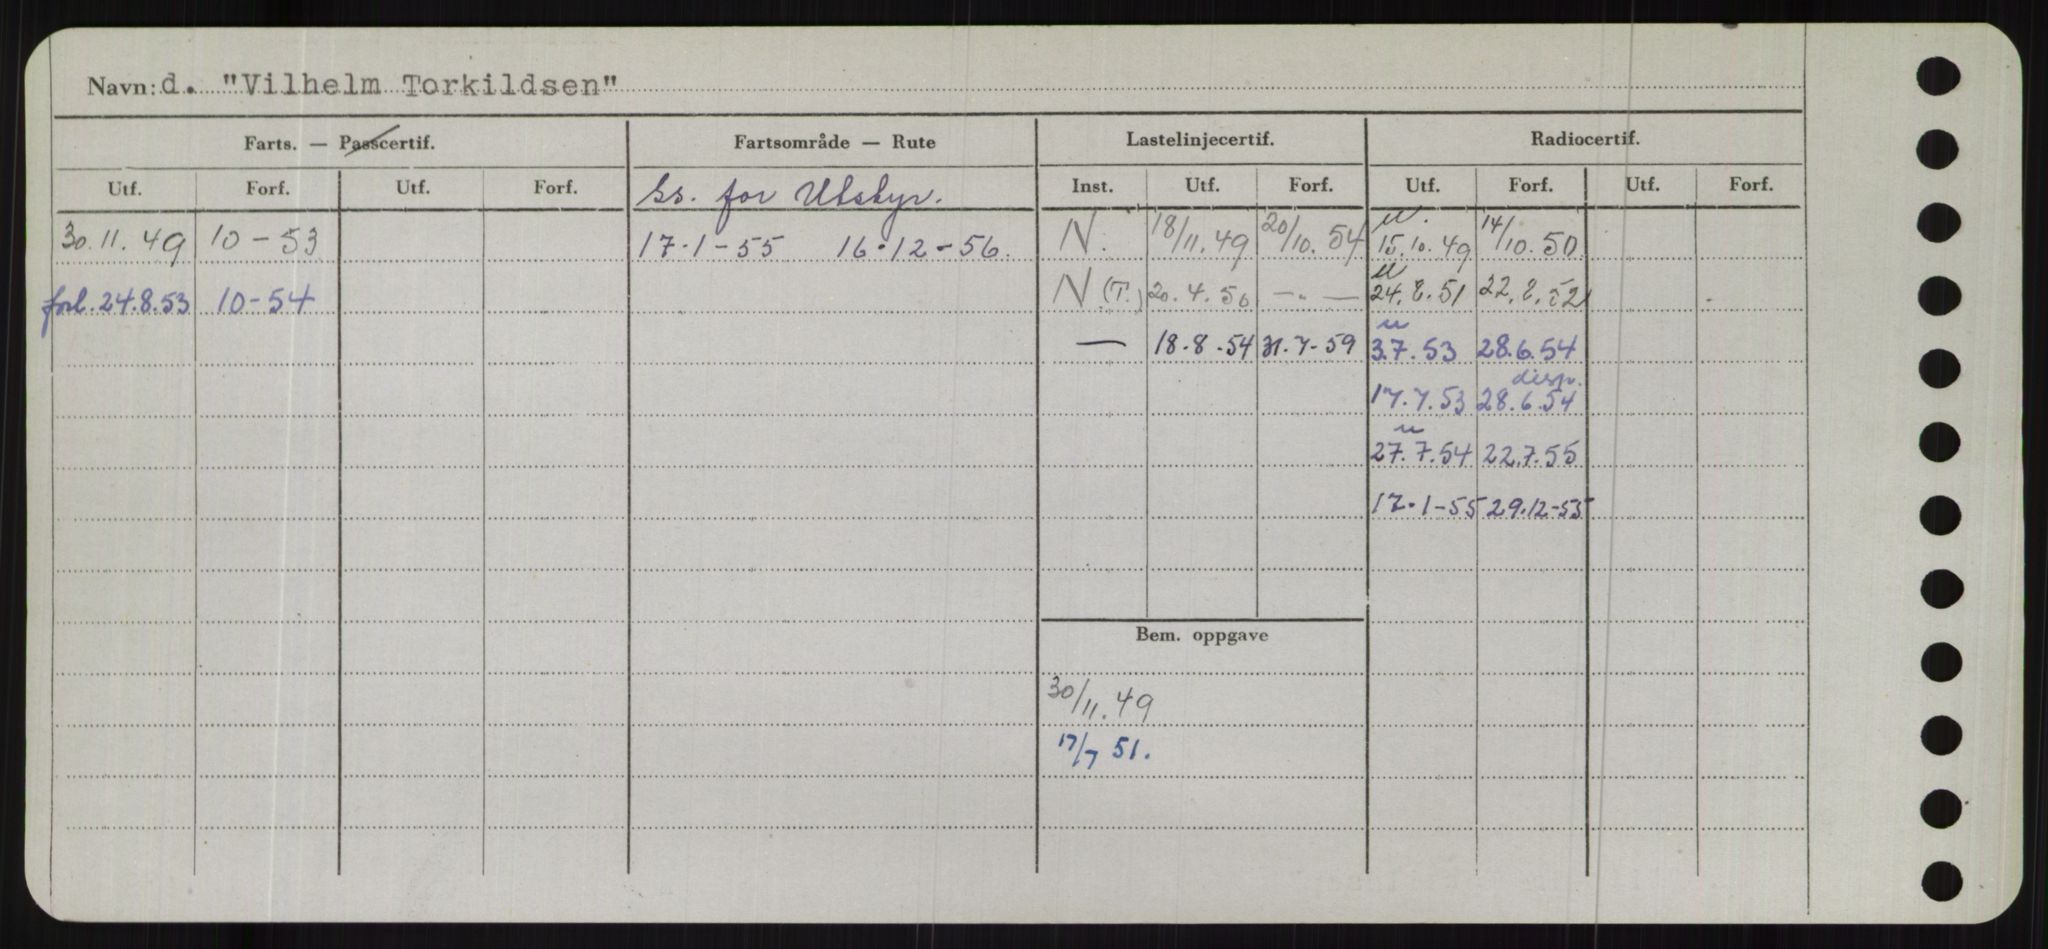 Navn: d. "Vilhelm Torkildsen"
Farts. — Passcertif. Fartsområde — Rute Lastelinjecertif. Radiocertif.
Utf. Forf. Utf. Forf. Ss. for Utstyr. Inst. Utf. Forf. Utf. Forf. Utf. Forf.
30.11.49 10-53 17-1-55 16-12-56. N. 18/11.49 20/10.54 u. 15.10.49 14/10.50
forl. 24.8.53 10-54 N(T.) 20.4.50 —.— u 24.8.51 22.8.52
— 18.8.54 31.7-59 u 3.7.53 28.6.54
17.7.53 disp. 28.6.54
u 27.7.54 22.7.55
17-1-55 29.12-55
Bem. oppgave
30/11.49
17/7 51.